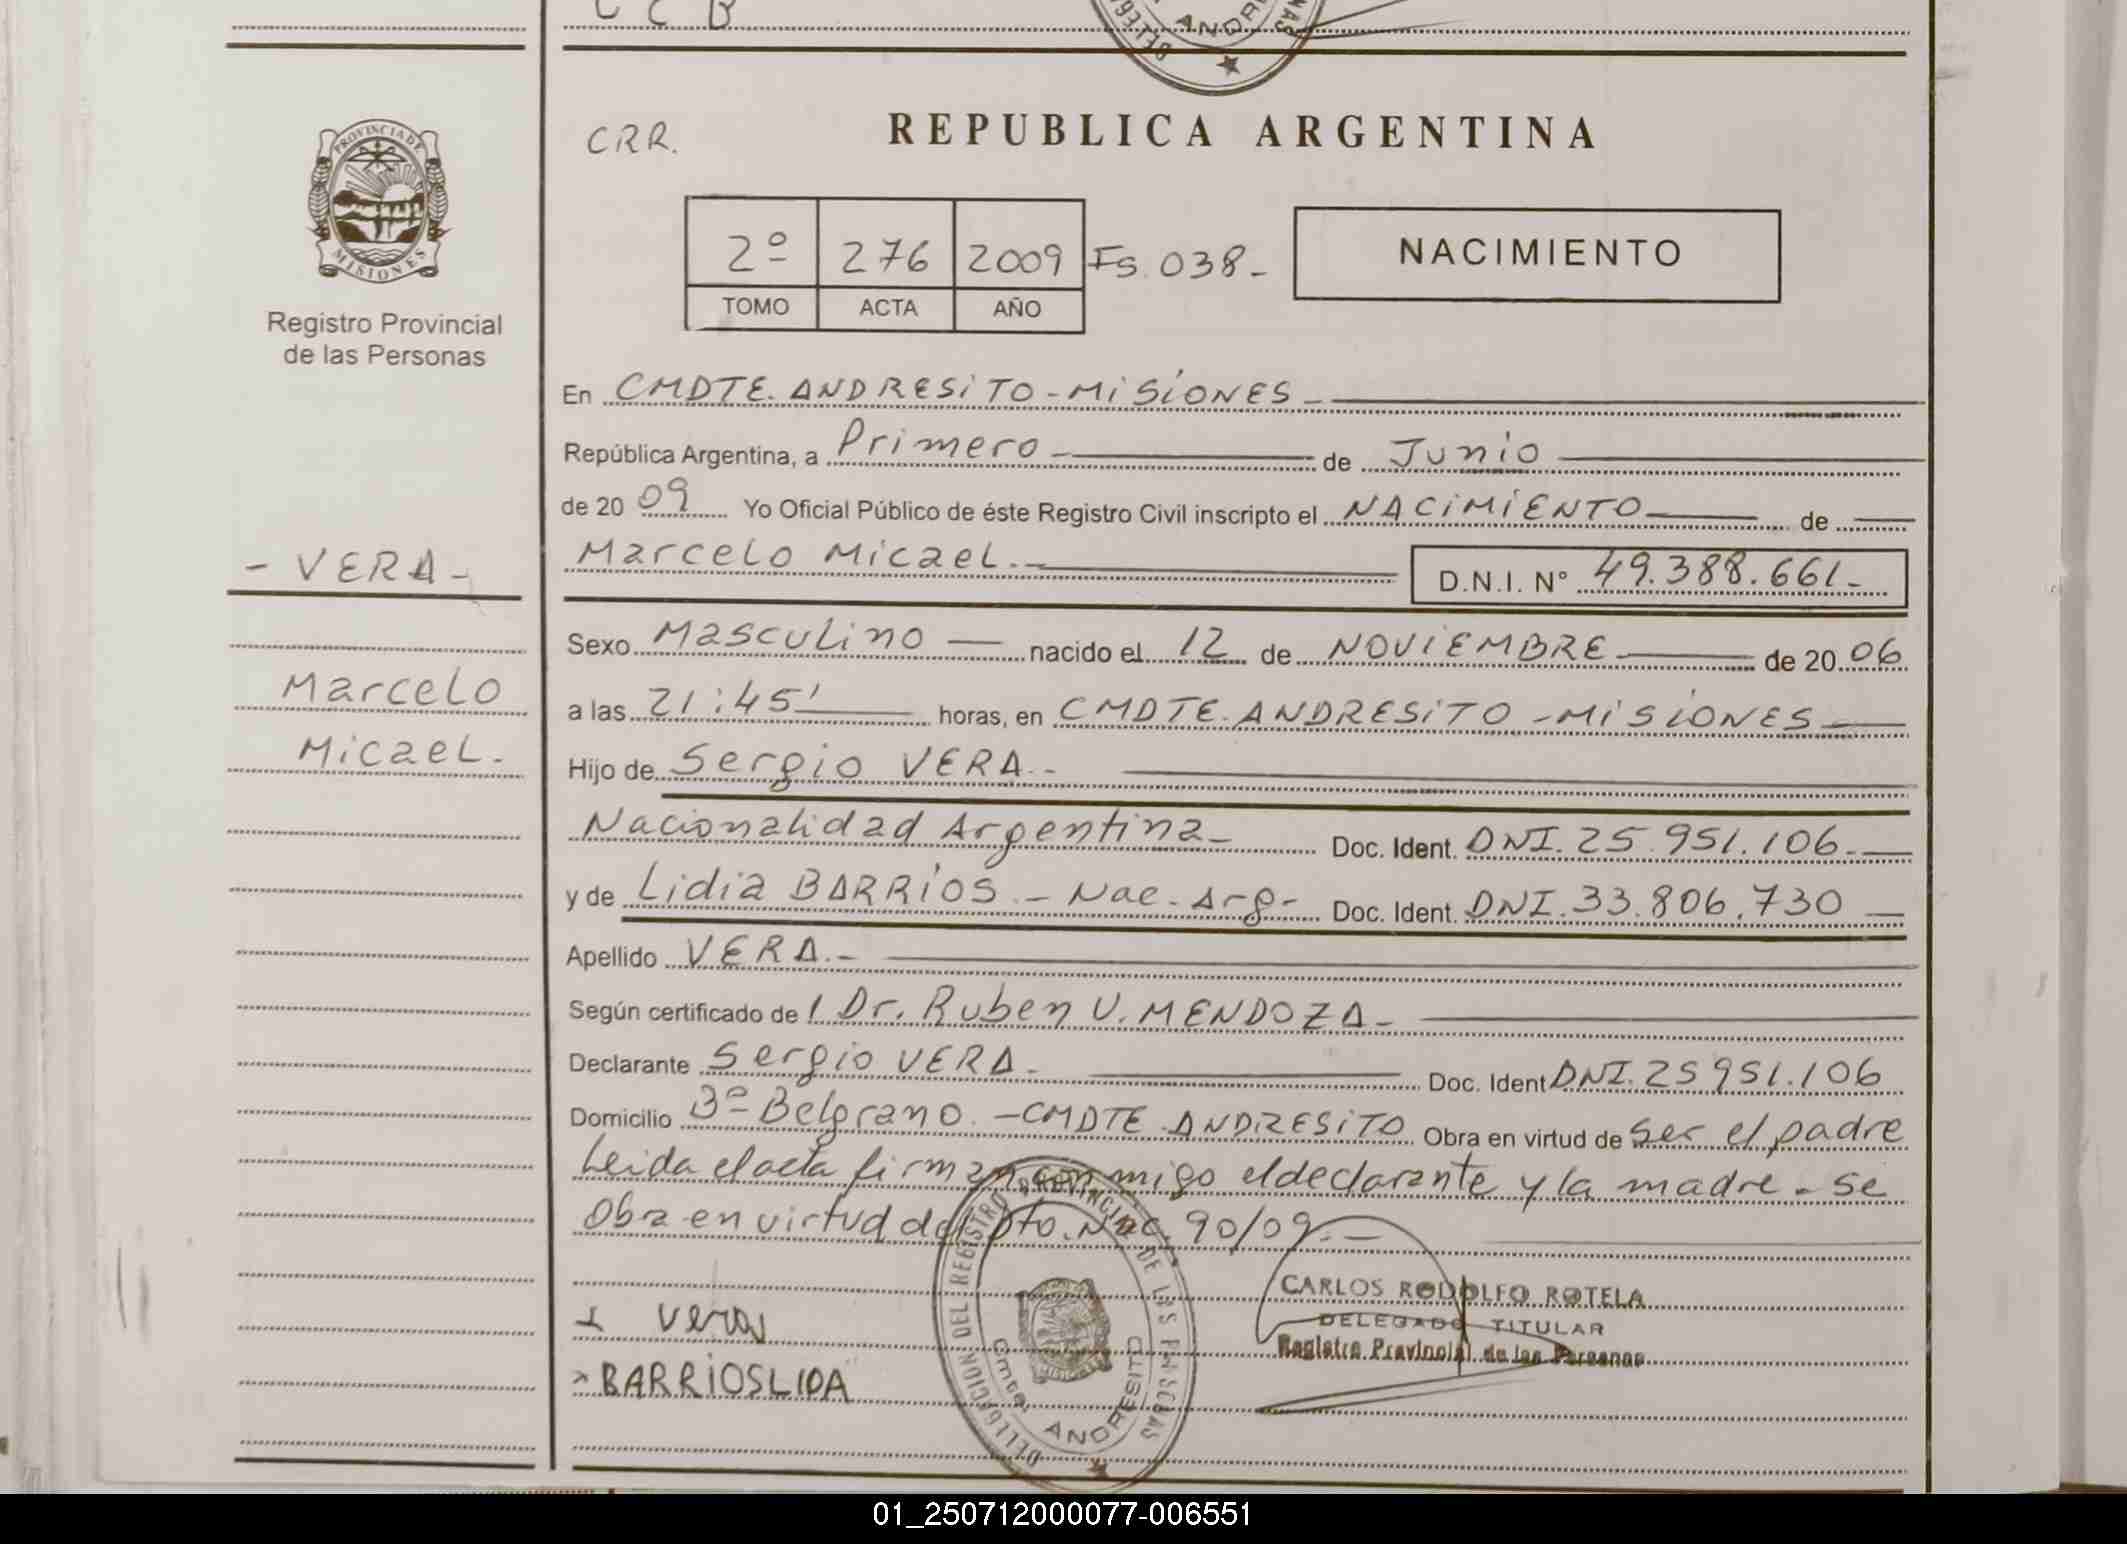 C C B
ANDRE
CRR.
REPUBLICA ARGENTINA
PROVINCIA DE
MISIONES
Registro Provincial
de las Personas
2º 276 2009 Fs. 038-
TOMO ACTA AÑO
NACIMIENTO
En CMDTE. ANDRESITO - MISIONES -
República Argentina, a Primero - de Junio
de 20 09 Yo Oficial Público de éste Registro Civil inscripto el NACIMIENTO de
- VERA -
Marcelo Micael.- D.N.I. Nº 49.388.661-
Sexo Masculino nacido el 12 de NOVIEMBRE de 20 06
Marcelo
a las 21:45' horas, en CMDTE. ANDRESITO - MISIONES
Micael.
Hijo de Sergio VERA.-
Nacionalidad Argentina - Doc. Ident. DNI. 25.951.106.-
y de Lidia BARRIOS.- Nac. Arg- Doc. Ident. DNI. 33.806.730
Apellido VERA.-
Según certificado de l Dr. Ruben U. MENDOZA-
Declarante Sergio VERA- Doc. Ident DNI. 25951.106
Domicilio Bº Belgrano. - CMDTE. ANDRESITO Obra en virtud de ser el padre
Leida el acta firman con migo el declarante y la madre - se
Obra en virtud del Dto. Nac. 90/09.-
DELEGACION DEL REGISTRO PROVINCIAL DE LAS PERSONAS
Cmte. ANDRESITO
CARLOS RODOLFO ROTELA
DELEGADO TITULAR
Registro Provincial de las Personas
x Vera
x BARRIOSLIDA
01_250712000077-006551